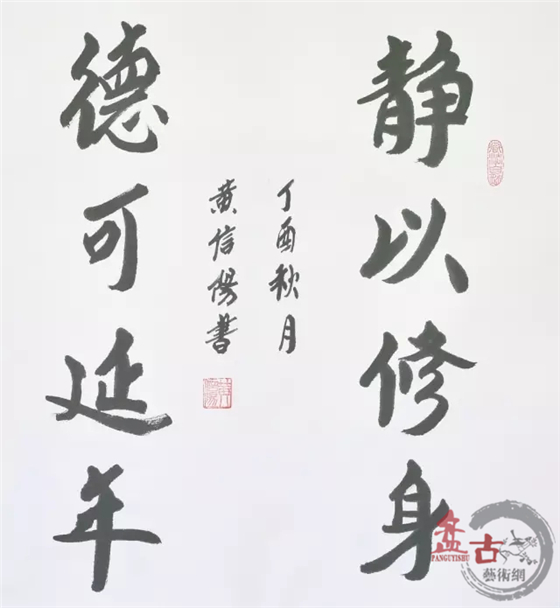 静以修身
丁酉秋月
黄信陽書
德可延年
盘古
PANGUYISHU
藝術網